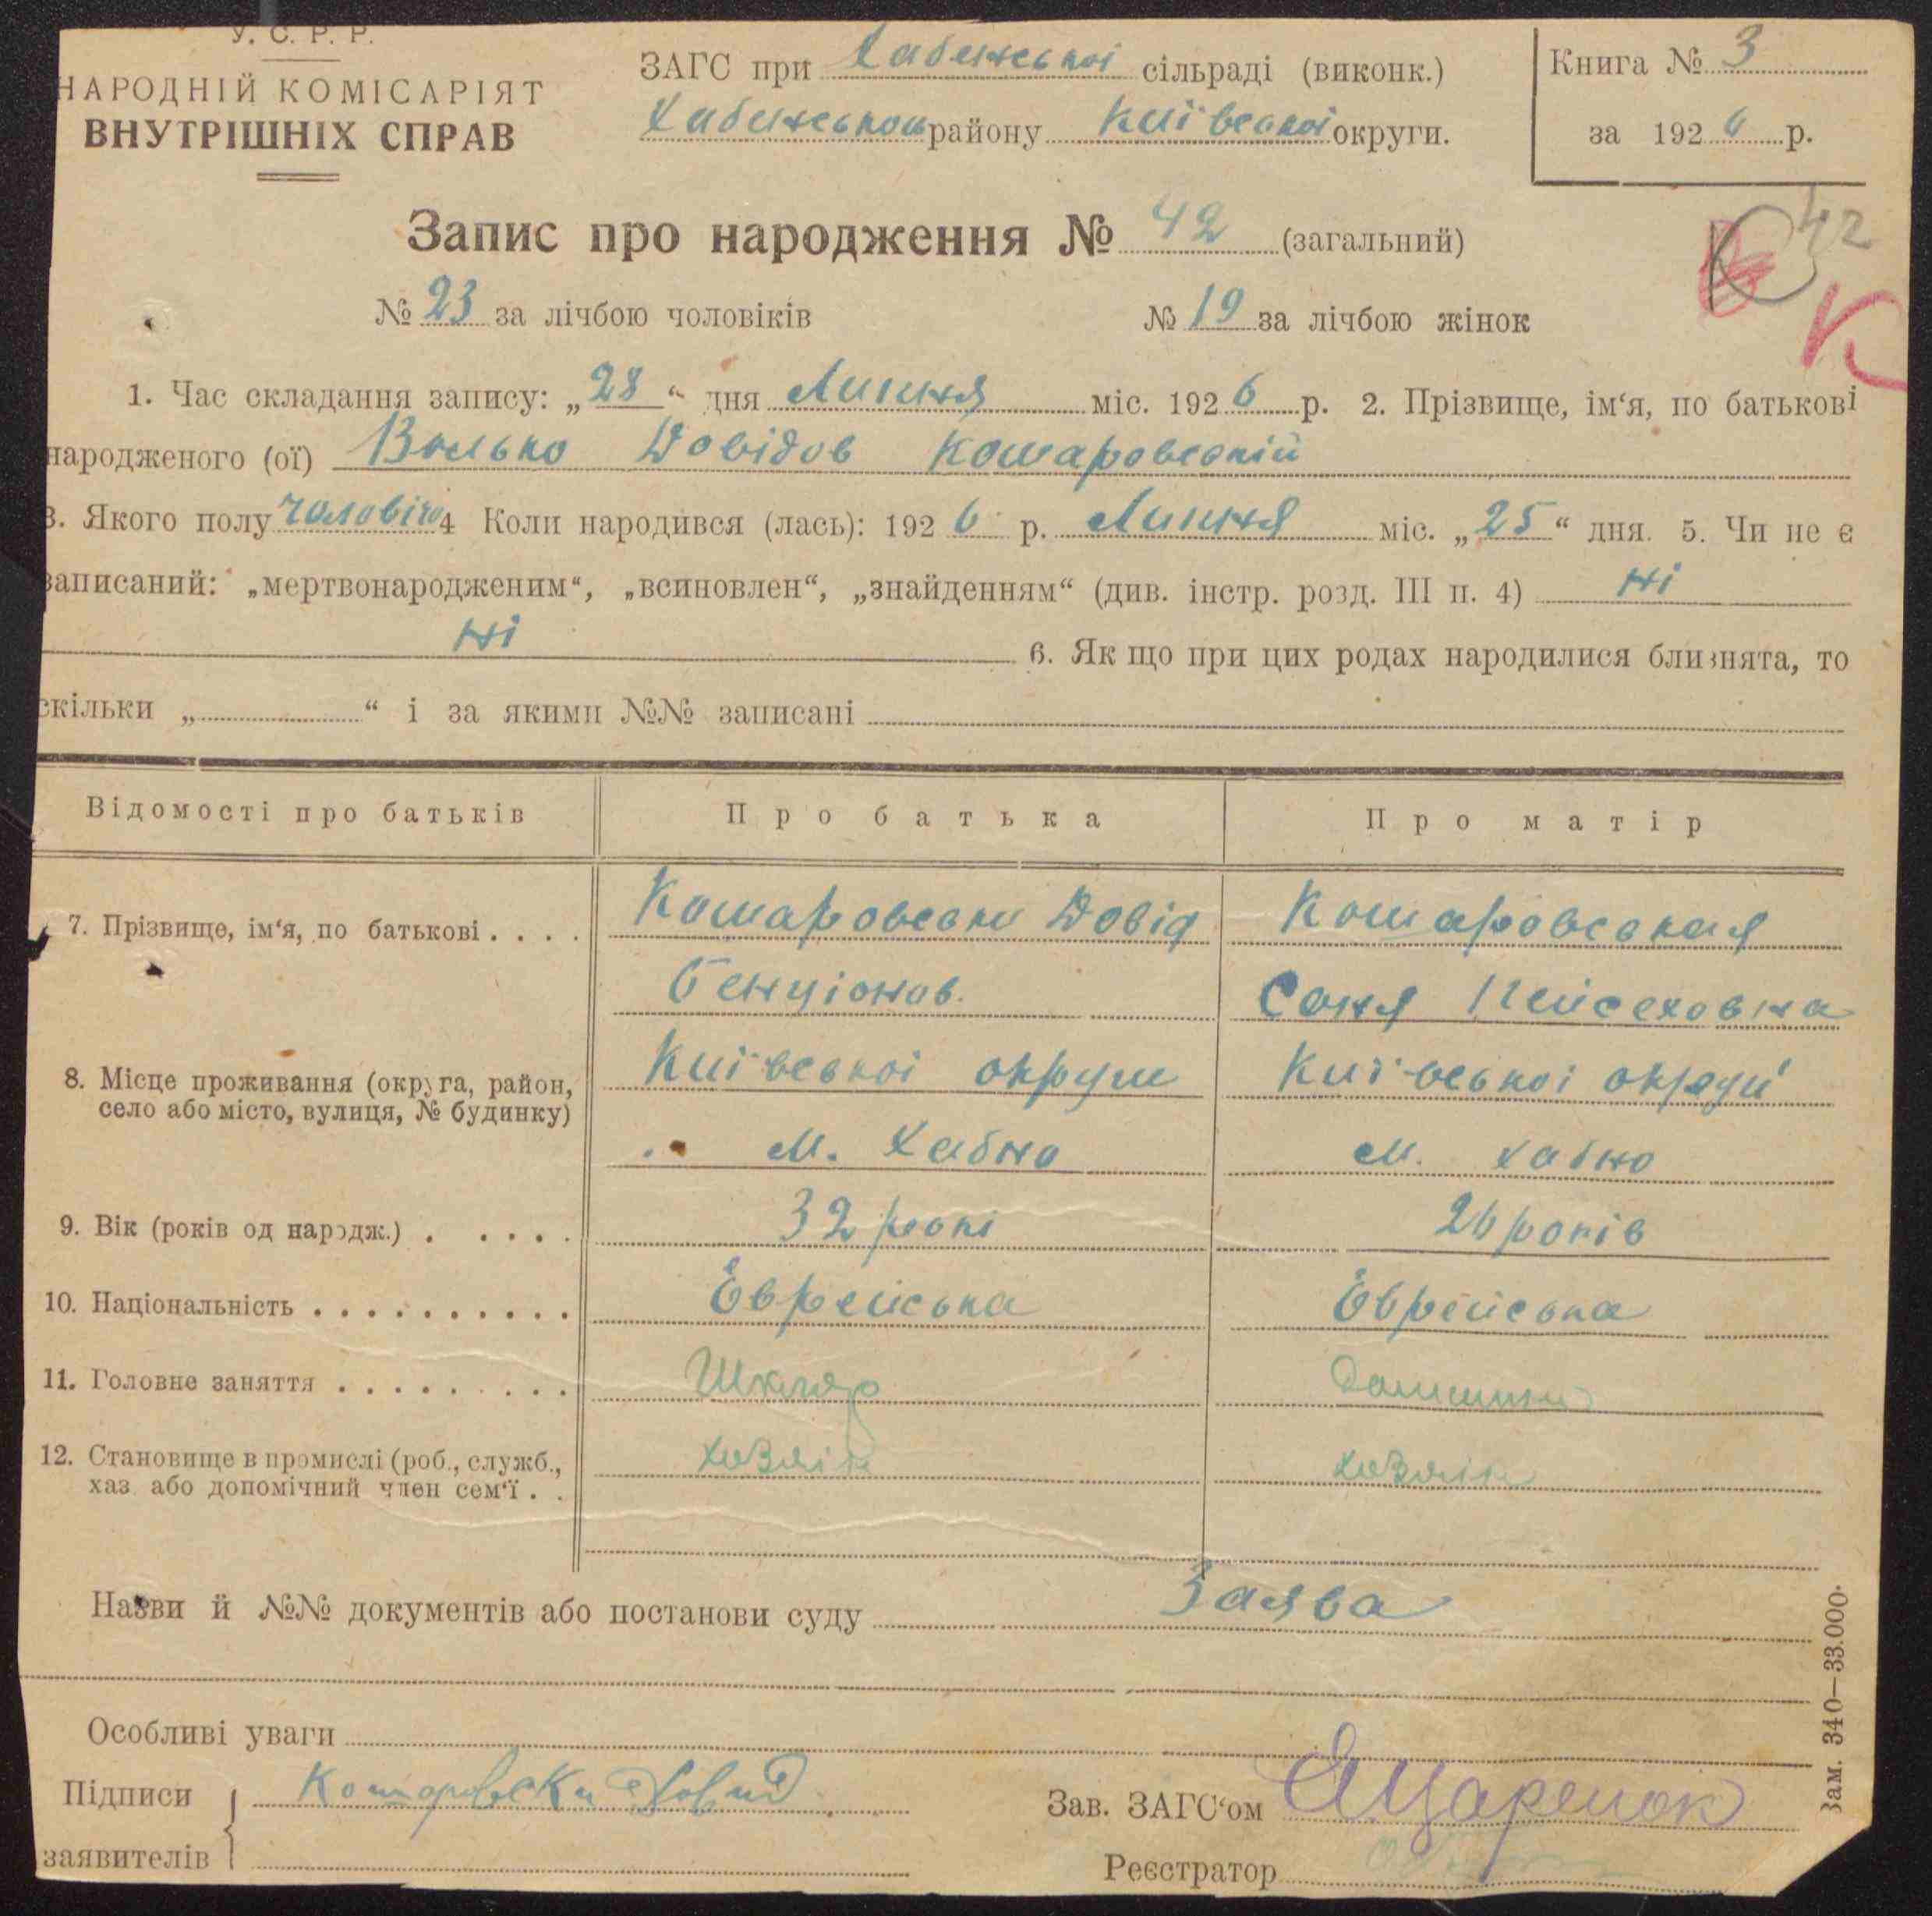 У. С. Р. Р.
НАРОДНІЙ КОМІСАРІЯТ
ВНУТРІШНІХ СПРАВ
ЗАГС при Хабенської сільраді (виконк.)
Хабенського району Київської округи.
Книга № 3
за 1926 р.
Запис про народження № 42 (загальний)
42
К
№ 23 за лічбою чоловіків № 19 за лічбою жінок
1. Час складання запису: „28“ дня Липня міс. 1926 р. 2. Прізвище, ім‘я, по батькові
народженого (ої) Волько Довідов Кошаровський
3. Якого полу чоловічо 4 Коли народився (лась): 1926 р. Липня міс. „25“ дня. 5. Чи не є
записаний: „мертвонародженим“, „всиновлен“, „знайденням“ (див. інстр. розд. III п. 4) Ні
Ні 6. Як що при цих родах народилися близнята, то
скільки „ “ і за якими №№ записані
Відомості про батьків Про батька Про матір
7. Прізвище, ім‘я, по батькові . . . . Кошаровськи Довід Кошаровская
Бенціонов. Соня Пейсеховна
8. Місце проживання (округа, район, Київської округи Київської округи
село або місто, вулиця, № будинку) м. Хабно м. Хабно
9. Вік (років од народж.) . . . . . 32 рокі 26 років
10. Національність . . . . . . . . . . Єврейська Єврейська
11. Головне заняття . . . . . . . . . Шкляр
12. Становище в промислі (роб., служб., хозяін хозяін
хаз. або допомічний член сем‘ї . .
Назви й №№ документів або постанови суду Заява
Особливі уваги
Підписи Кошаровски Довид Зав. ЗАГС‘ом
заявителів Реєстратор
Зам. 340—33.000.